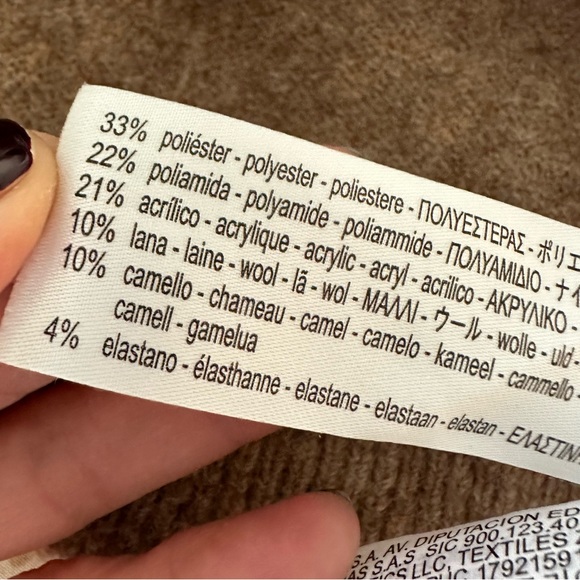 33% poliéster - polyester - poliestere - ΠΟΛΥΕΣΤΕΡΑΣ - ポリエ
22% poliamida - polyamide - poliammide - ΠΟΛΥΑΜΙΔΙΟ - ナイ
21% acrílico - acrylique - acrylic - acryl - acrilico - ΑΚΡΥΛΙΚΟ -
10% lana - laine - wool - lã - wol - ΜΑΛΛΙ - ウール - wolle - uld -
10% camello - chameau - camel - camelo - kameel - cammello -
camell - gamelua
4% elastano - élasthanne - elastane - elastaan - elastan - ΕΛΑΣΤΙΝΗ
S.A. AV. DIPUTACION ED
AS S.A.S. SIC 900.123.40
CS LLC, TEXTILES
1792159